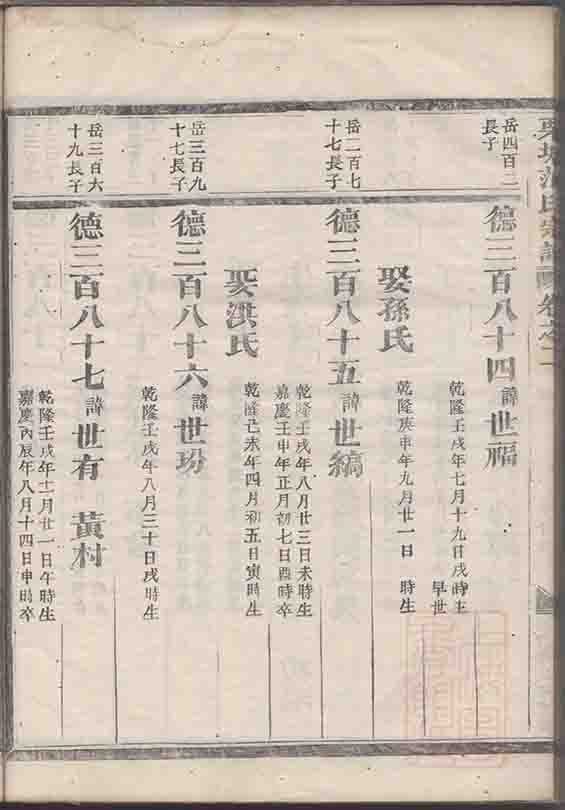 氏宗譜 卷之二
岳四百二
長子
德三百八十四 諱世福
乾隆壬戌年七月十九日戌時生
早世
娶孫氏
乾隆庚申年九月廿一日 時生
岳二百七
十七長子
德三百八十五 諱世縞
乾隆壬戌年八月廿三日未時生
嘉慶壬申年正月初七日酉時卒
娶洪氏
乾隆己未年四月初五日寅時生
岳三百九
十七長子
德三百八十六 諱世玢
乾隆壬戌年八月三十日戌時生
岳三百六
十九長子
德三百八十七 諱世有 黃村
乾隆壬戌年十二月廿一日午時生
嘉慶丙辰年八月十四日申時卒